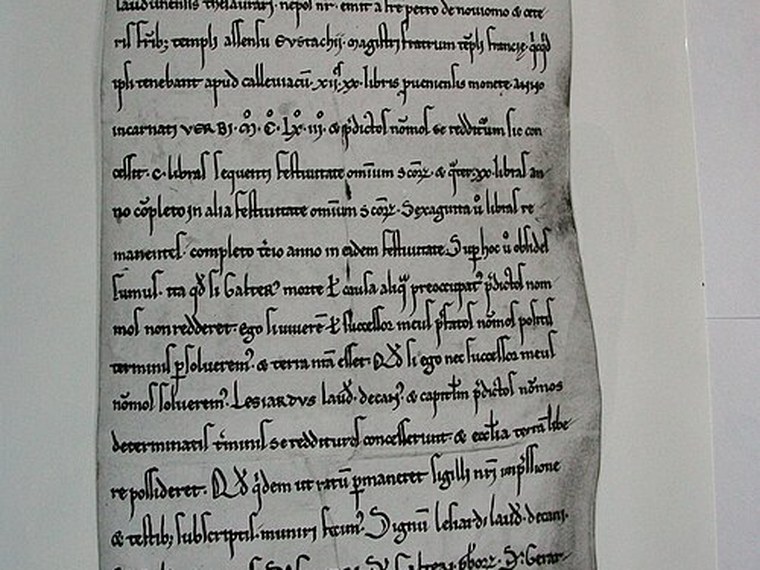 laudunensis thesaurarij. nepos nr̄. emit a fr̄e petro de noviomo & cete
ris fr̄ib; templi assensu Evstachii. magistri fratrum tēpli francię. qͥcqͥd
ipsi tenebant apud calleuiacū. xii. xx. libris pruuiniensis monete. anno
incarnati VERBI. M̊. C̊. Lx̊. iii̊. & p̄dictos nūmos se redditurum sic con
cessit. c. libras sequenti festiuitate omnium scōꝝ. & qͣter. xx. libras an
no cōpleto in alia festiuitate omnium scōꝝ. Sexaginta ů libras re
manentes. completo tͨio anno in eadem festiuitate. Sup hoc ů obsides
sumus. ita qđ si Galterꝰ morte ł causa aliqͣ preoccupatꝰ p̄dictos num
mos non redderet. ego si uiuerē ł successor meus p̄fatos nūmos positis
terminis ꝑsolueremꝰ. & terra nr̄a esset. Qđ si ego nec successor meus
nūmos soluerem. LESIARDVS laud̄. decanꝰ. & capitłm p̄dictos nūmos
determinatis t̄minis se reddituros concesserunt. & ecclia terrā libe
re possideret. Qđ qͥdem ut ratū ꝑmaneret sigilli nr̄i imp̄ssione
& testib; subscriptis muniri fecimꝰ. Signū lesiardi laud̄. decani.